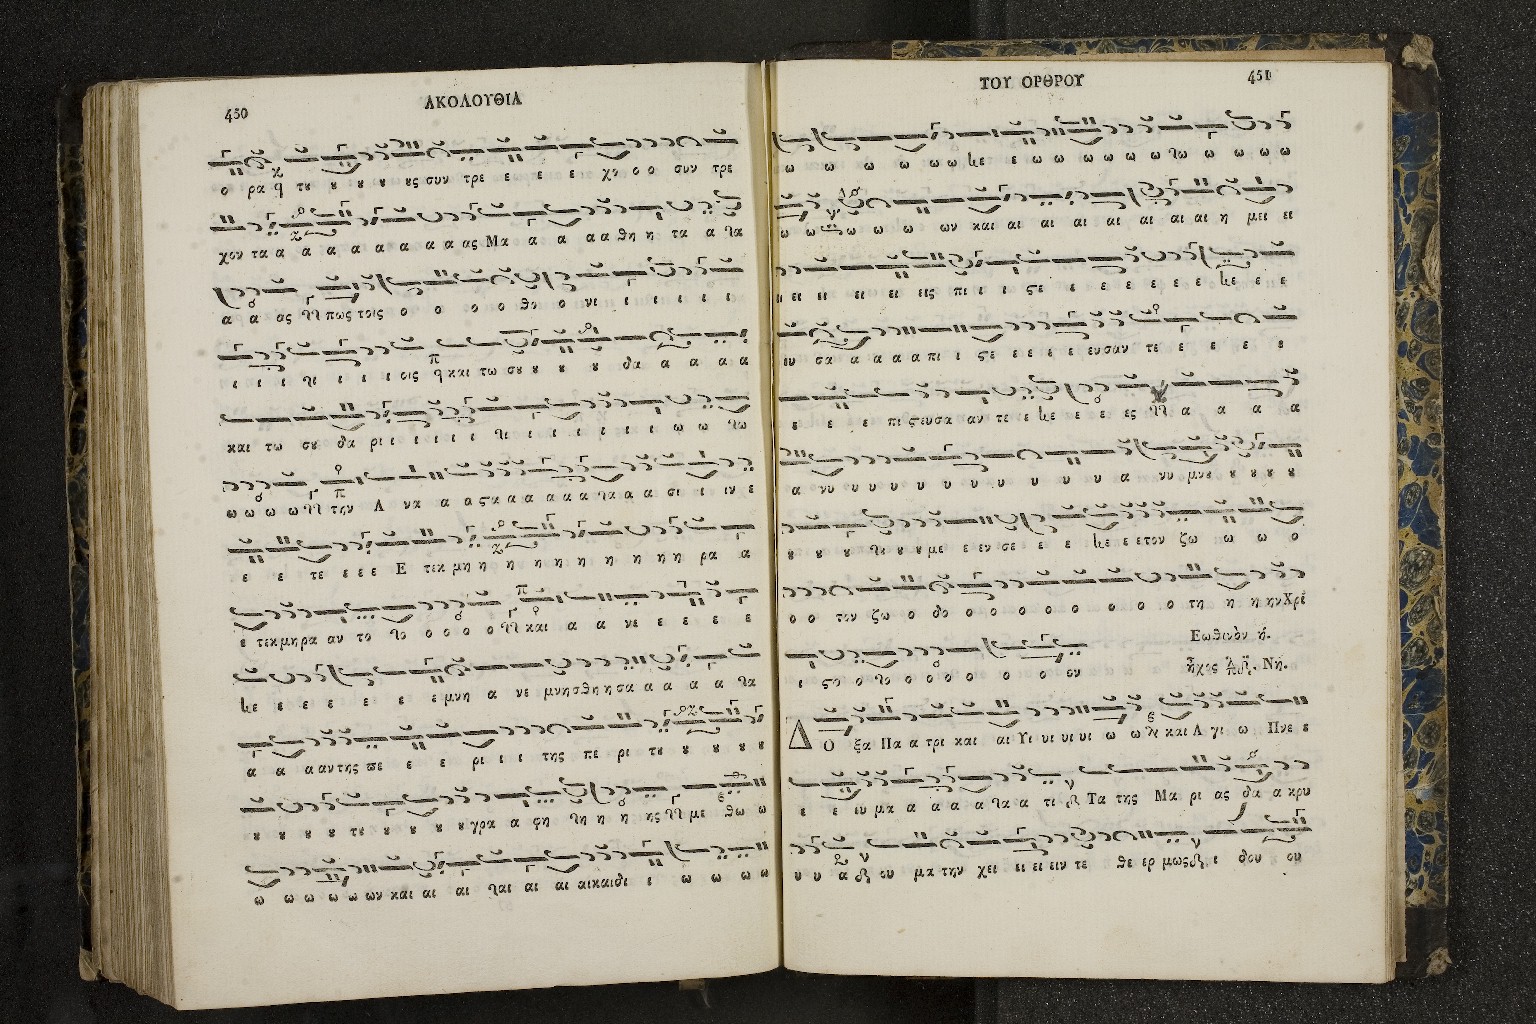 450
ΑΚΟΛΟΥΘΙΑ
ο ρα τȣ ȣ ȣ ȣ ȣς συν τρε ε ε ε χο ο ο συν τρε
χον τα α α α α α α α α ας Μα α α α θη η τα α
α α ας πως τοις ο ο ο ο θο ο νι ι ι ι ι ι
ι ι ι ι ι ι οις και τω σȣ ȣ ȣ ȣ δα α α α α
και τω σȣ δα ρι ι ι ι ι ι ι ι ι ι ι ω ω
ω ω ω ω την Α να α α ςα α α α α α α α σι ι ιν ε
ε ε τε ε ε ε Ε τεκ μη η η η η η η η η η ρα α
ε τεκμηρα αν το ο ο ο ο και α α νε ε ε ε ε
ε ε ε ε ε ε ε μνη α νε μνησθη η σα α α α α
α α α αν της πε ε ε ρι ι ι της πε ρι τȣ ȣ ȣ ȣ ȣ
ȣ ȣ ȣ ȣ τȣ ȣ ȣ ȣ ȣ γρα α φη η η ης με θω ω
ω ω ω ω ω ων και αι αι αι αι αι αικαιδι ι ω ω ω ω
ΤΟΥ ΟΡΘΡΟΥ
451
ω ω ω ω ω ω ε ω ω ω ω ω ω ω ω ω ω
ω ω ω ω ω ων και αι αι αι αι αι αι αι η μει ει
ει ει ει ει εις πι ι ι ςε ε ε ε ε ε ε ε ε
ευ σα α α α α πι ι ςε ε ε ε ε ευσαν τε ε ε ε ε
ε ε ε πιςευσα αν τε ε ε ε ες α α α α
α νυ υ υ υ υ υ υ υ υ υ υ α νυ μνȣ ȣ ȣ ȣ ȣ
ȣ ȣ ȣ ȣ ȣ με ε εν σε ε ε ε ετον ζω ω ω ο
ο ο τον ζω ο δο ο ο ο ο ο ο ο ο τη η η ηνΧρι
Εωθινὸν ή.
ι ςο ο ο ο ο ο ο ο ον
ἦχος Νη.
Δ Ο ξα Πα α τρι και αι Υι υι υι υι ω ω και Α γι ω Πνε ε
ε ε ευ μα α α α α α τι Τα της Μα ρι ας δα α κρυ
υ υ α ου μα την χει ει ει ειν τε θε ερ μως ι δου ου